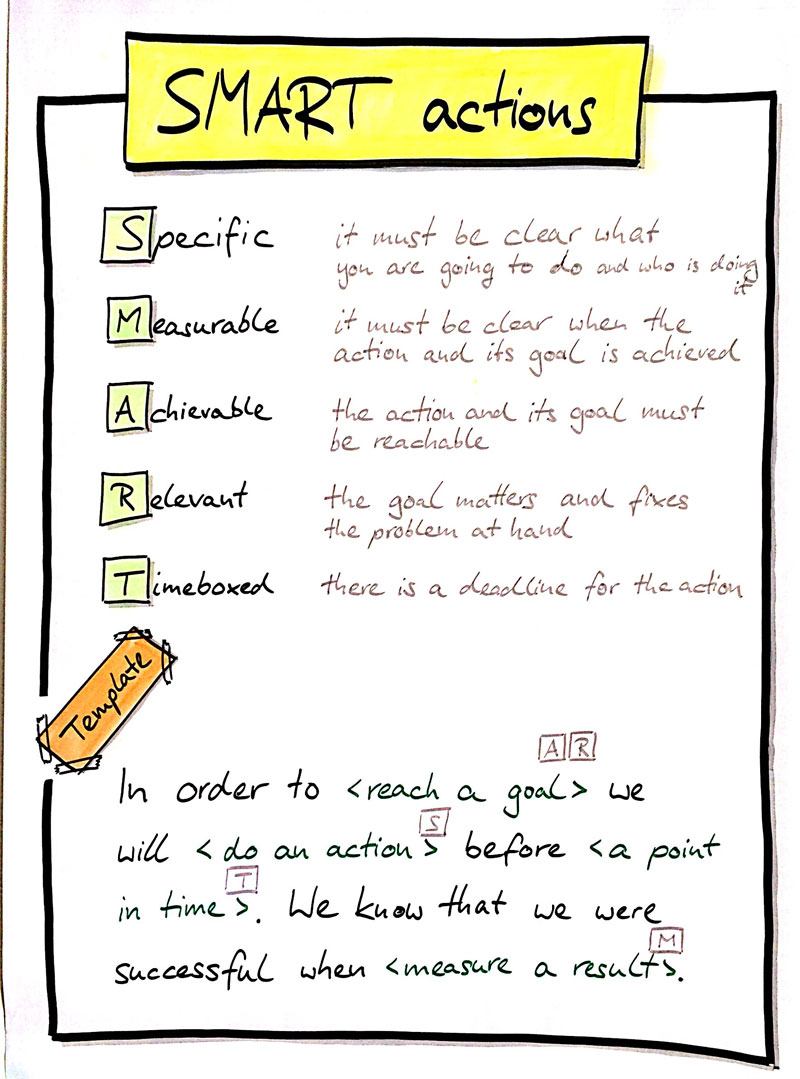 SMART actions
Specific
it must be clear what
you are going to do and who is doing
it
Measurable
it must be clear when the
action and its goal is achieved
Achievable
the action and its goal must
be reachable
Relevant
the goal matters and fixes
the problem at hand
Timeboxed
there is a deadline for the action
Template
A R
In order to <reach a goal> we
S
will <do an action> before <a point
T
in time>. We know that we were
M
successful when <measure a result>.